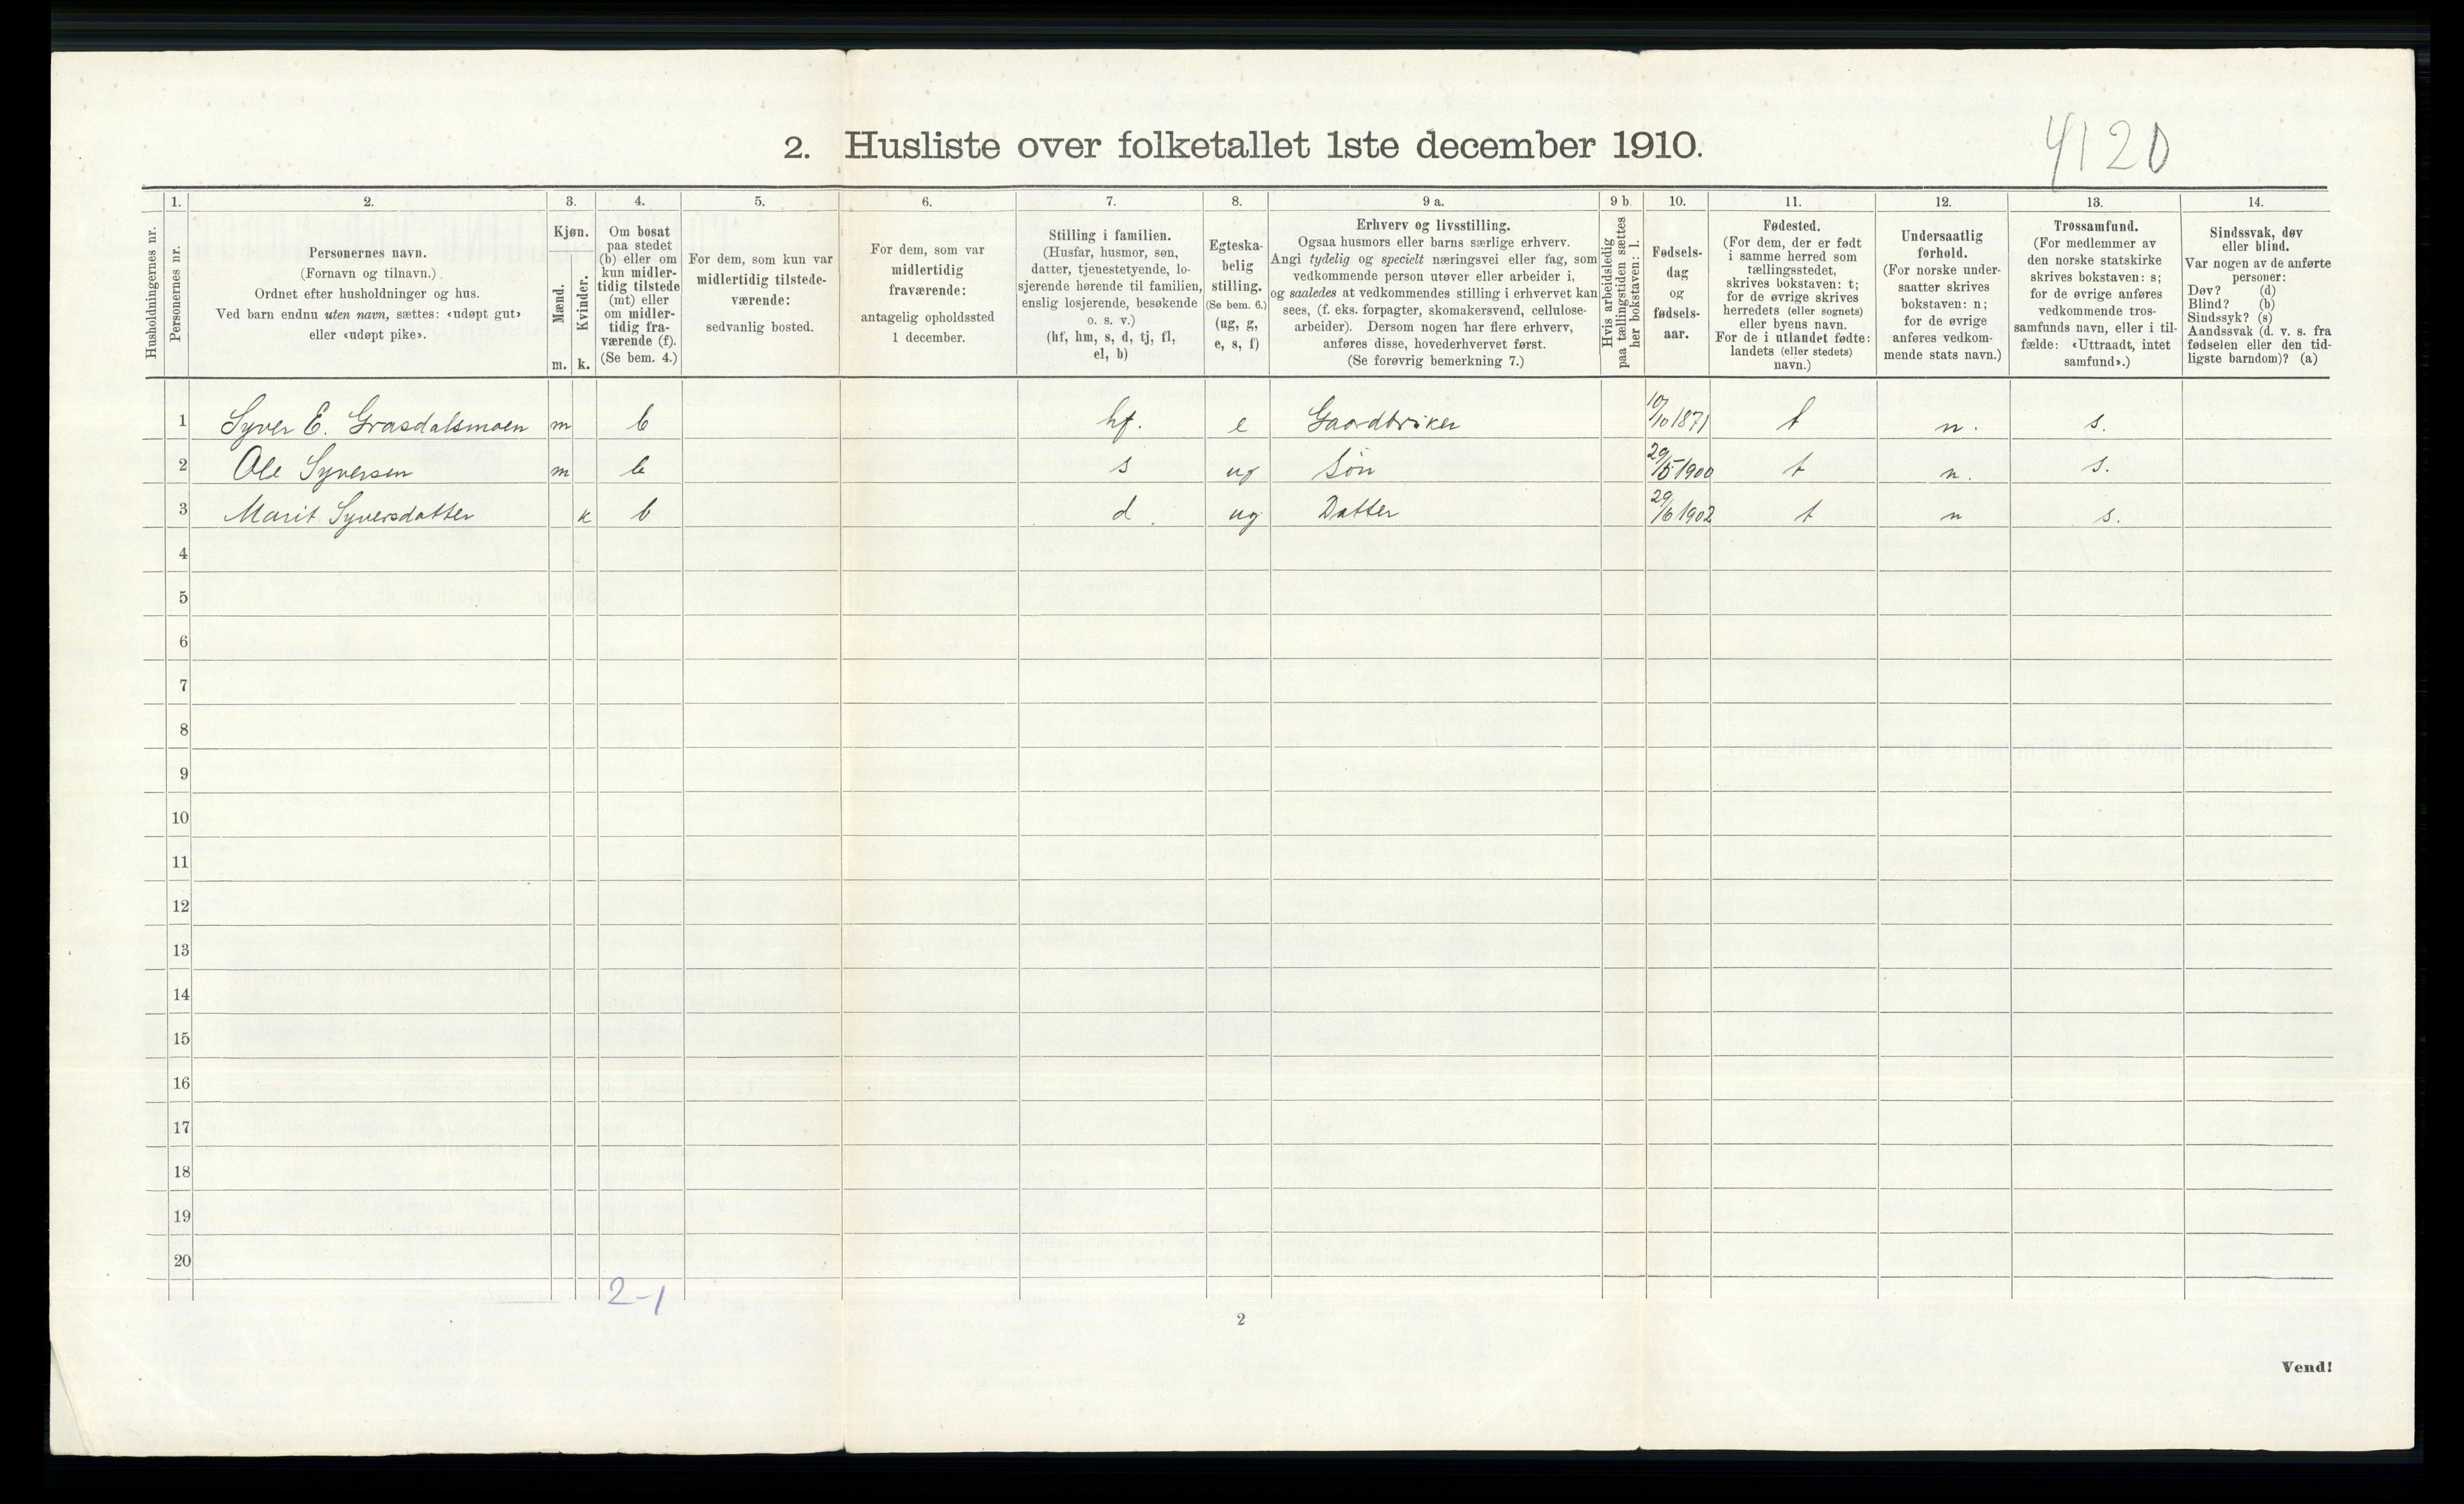 2. Husliste over folketallet 1ste december 1910.
4120
Husholdningernes nr.
1.
Personernes nr.
2.
Personernes navn.
(Fornavn og tilnavn.)
Ordnet efter husholdninger og hus.
Ved barn endnu uten navn, sættes: «udøpt gut»
eller «udøpt pike».
3.
Kjøn.
Mænd.
Kvinder.
m. k.
4.
Om bosat
paa stedet
(b) eller om
kun midler-
tidig tilstede
(mt) eller
om midler-
tidig fra-
værende (f).
(Se bem. 4.)
5.
For dem, som kun var
midlertidig tilstede-
værende:
sedvanlig bosted.
6.
For dem, som var
midlertidig
fraværende:
antagelig opholdssted
1 december.
7.
Stilling i familien.
(Husfar, husmor, søn,
datter, tjenestetyende, lo-
sjerende hørende til familien,
enslig losjerende, besøkende
o. s. v.)
(hf, hm, s, d, tj, fl,
el, b)
8.
Egteska-
belig
stilling.
(Se bem. 6.)
(ug, g,
e, s, f)
9 a.
Erhverv og livsstilling.
Ogsaa husmors eller barns særlige erhverv.
Angi tydelig og specielt næringsvei eller fag, som
vedkommende person utøver eller arbeider i,
og saaledes at vedkommendes stilling i erhvervet kan
sees, (f. eks. forpagter, skomakersvend, cellulose-
arbeider). Dersom nogen har flere erhverv,
anføres disse, hovederhvervet først.
(Se forøvrig bemerkning 7.)
9 b.
Hvis arbeidsledig
paa tællingstiden sættes
her bokstaven: l.
10.
Fødsels-
dag
og
fødsels-
aar.
11.
Fødested.
(For dem, der er født
i samme herred som
tællingsstedet,
skrives bokstaven: t;
for de øvrige skrives
herredets (eller sognets)
eller byens navn.
For de i utlandet fødte:
landets (eller stedets)
navn.)
12.
Undersaatlig
forhold.
(For norske under-
saatter skrives
bokstaven: n;
for de øvrige
anføres vedkom-
mende stats navn.)
13.
Trossamfund.
(For medlemmer av
den norske statskirke
skrives bokstaven: s;
for de øvrige anføres
vedkommende tros-
samfunds navn, eller i til-
fælde: «Uttraadt, intet
samfund».)
14.
Sindssvak, døv
eller blind.
Var nogen av de anførte
personer:
Døv? (d)
Blind? (b)
Sindssyk? (s)
Aandssvak (d. v. s. fra
fødselen eller den tid-
ligste barndom)? (a)
1 Syver E. Grasdalsmoen m b hf. e Gaardbruker 10/10 1871 t n. s.
2 Ole Syversen m b s ug Søn 29/5 1900 t n. s.
3 Marit Syversdatter k b d. ug Datter 29/6 1902 t n s.
4
5
6
7
8
9
10
11
12
13
14
15
16
17
18
19
20
2-1
2
Vend!